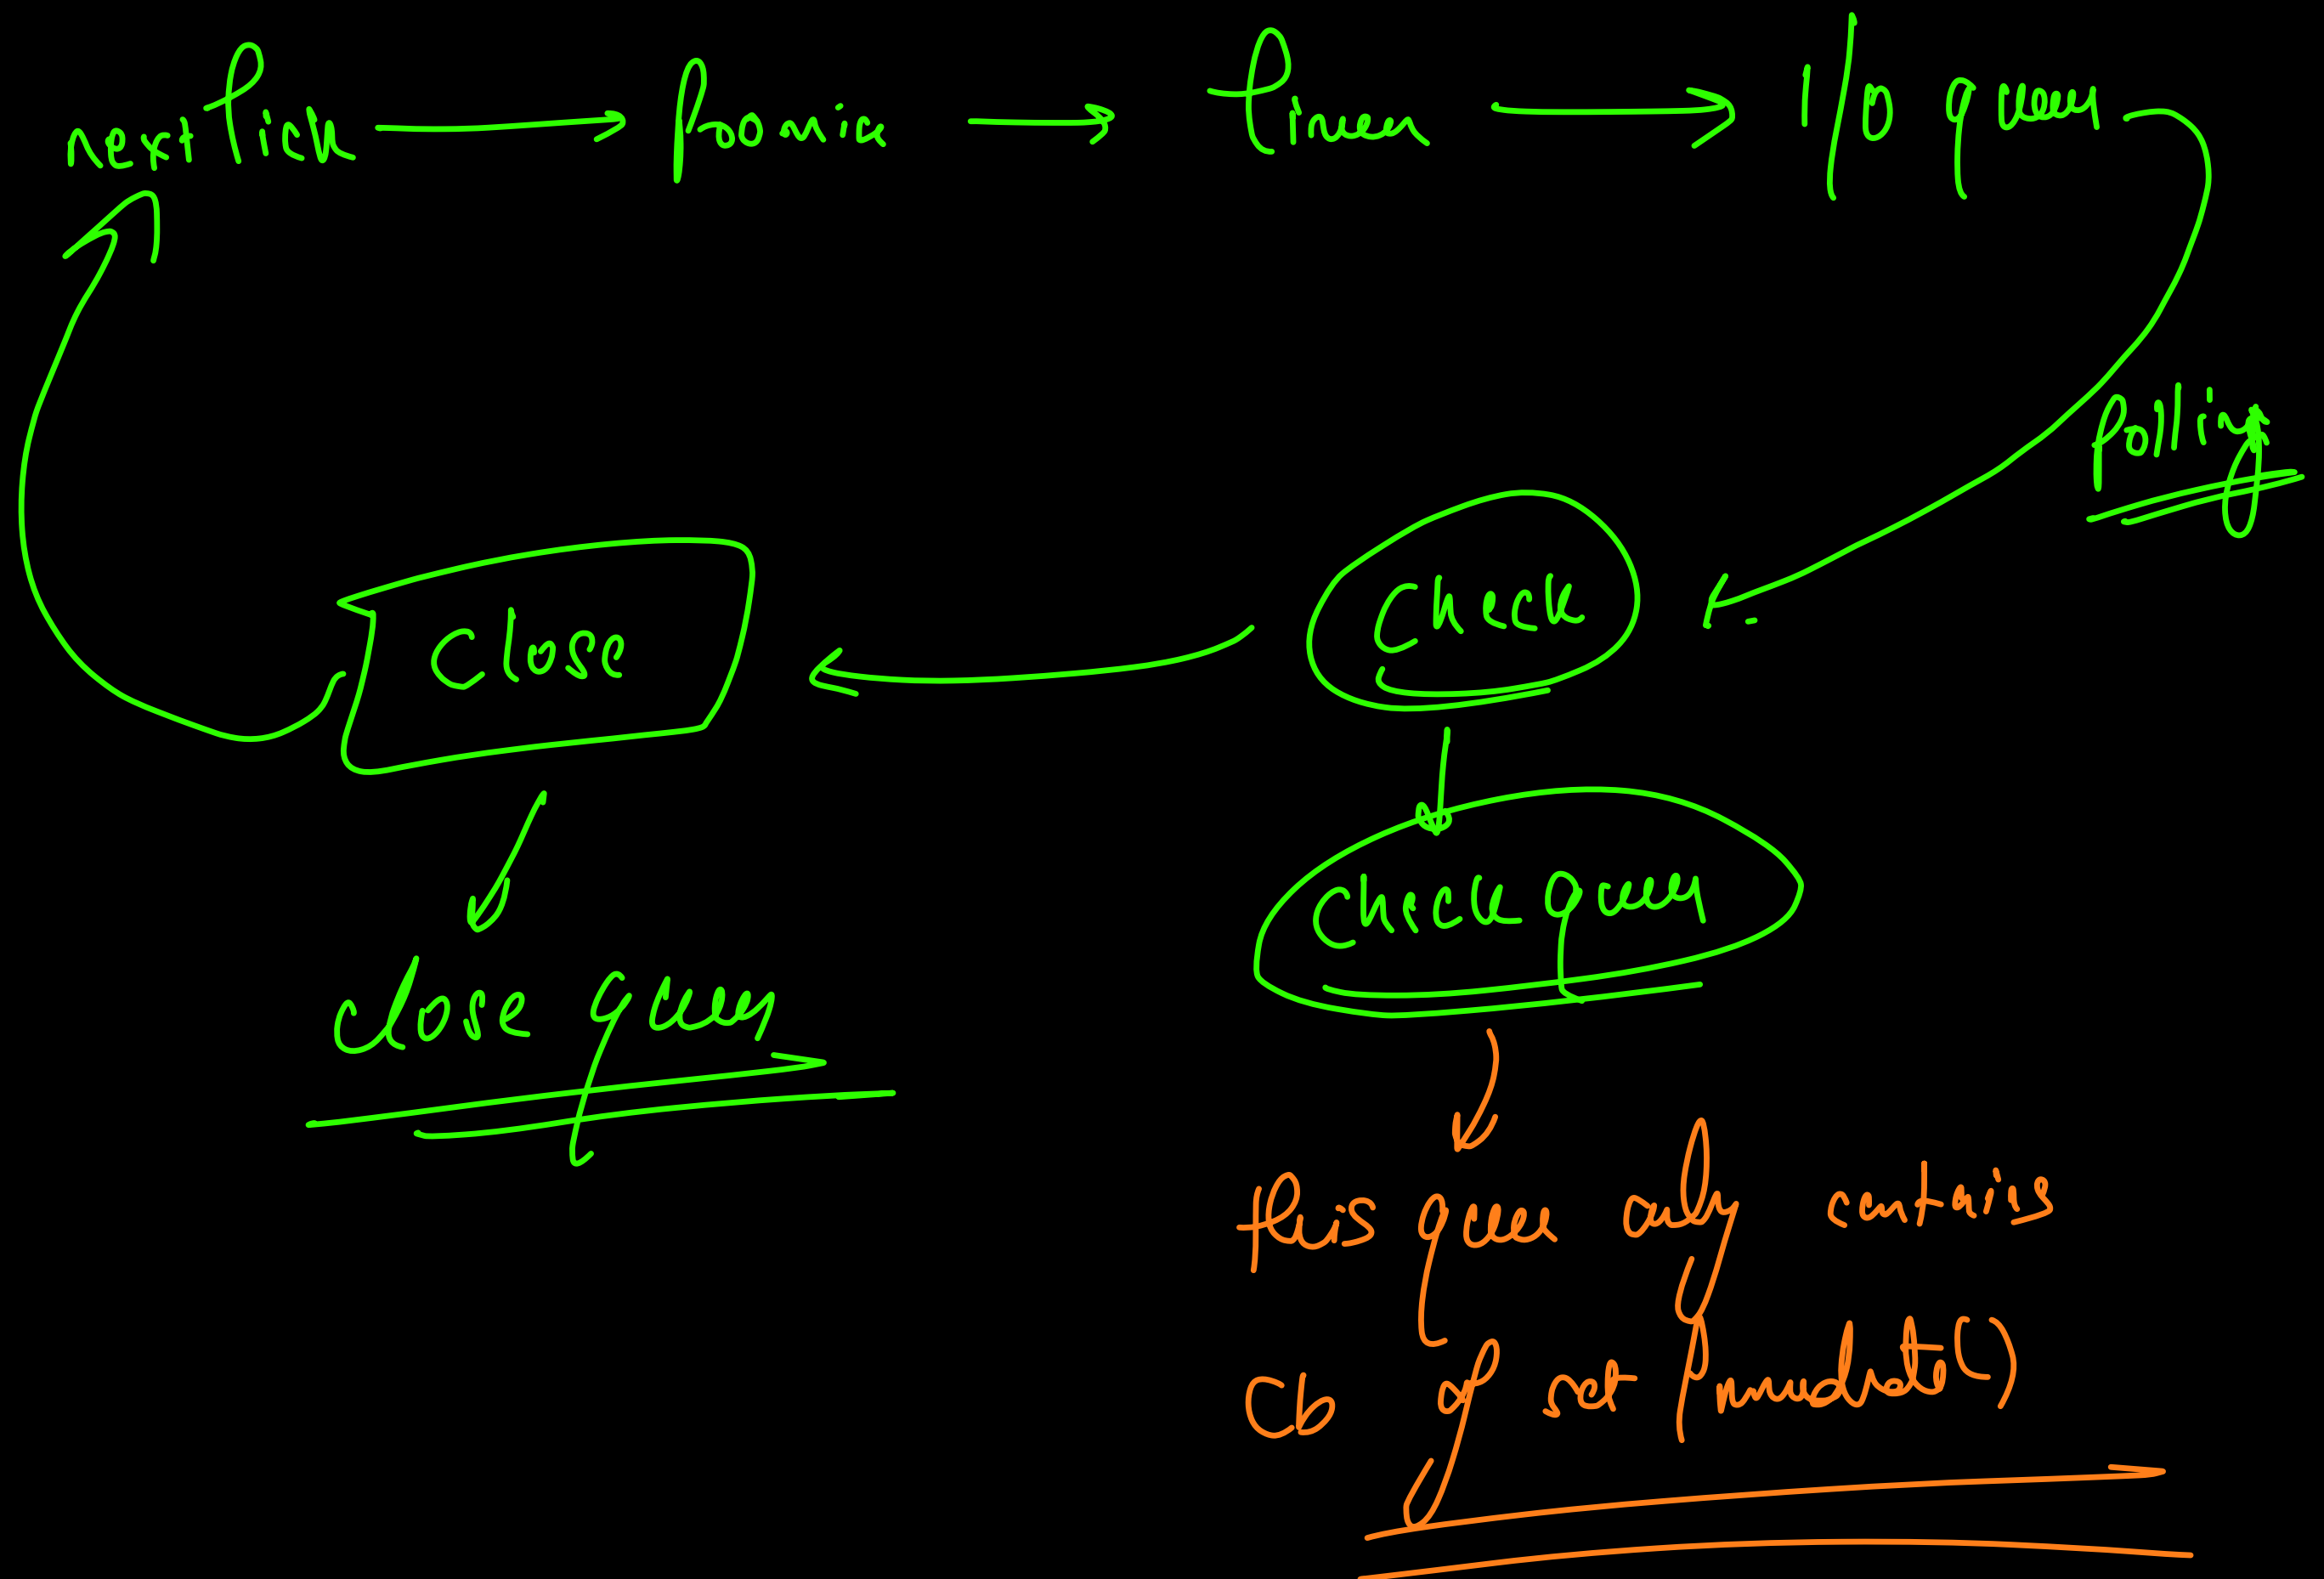 nextTick → Promise → Timer → I/O queue
Polling
Check
Close
Check queue
Close queue
This queue only contains
Cb of setImmediate()